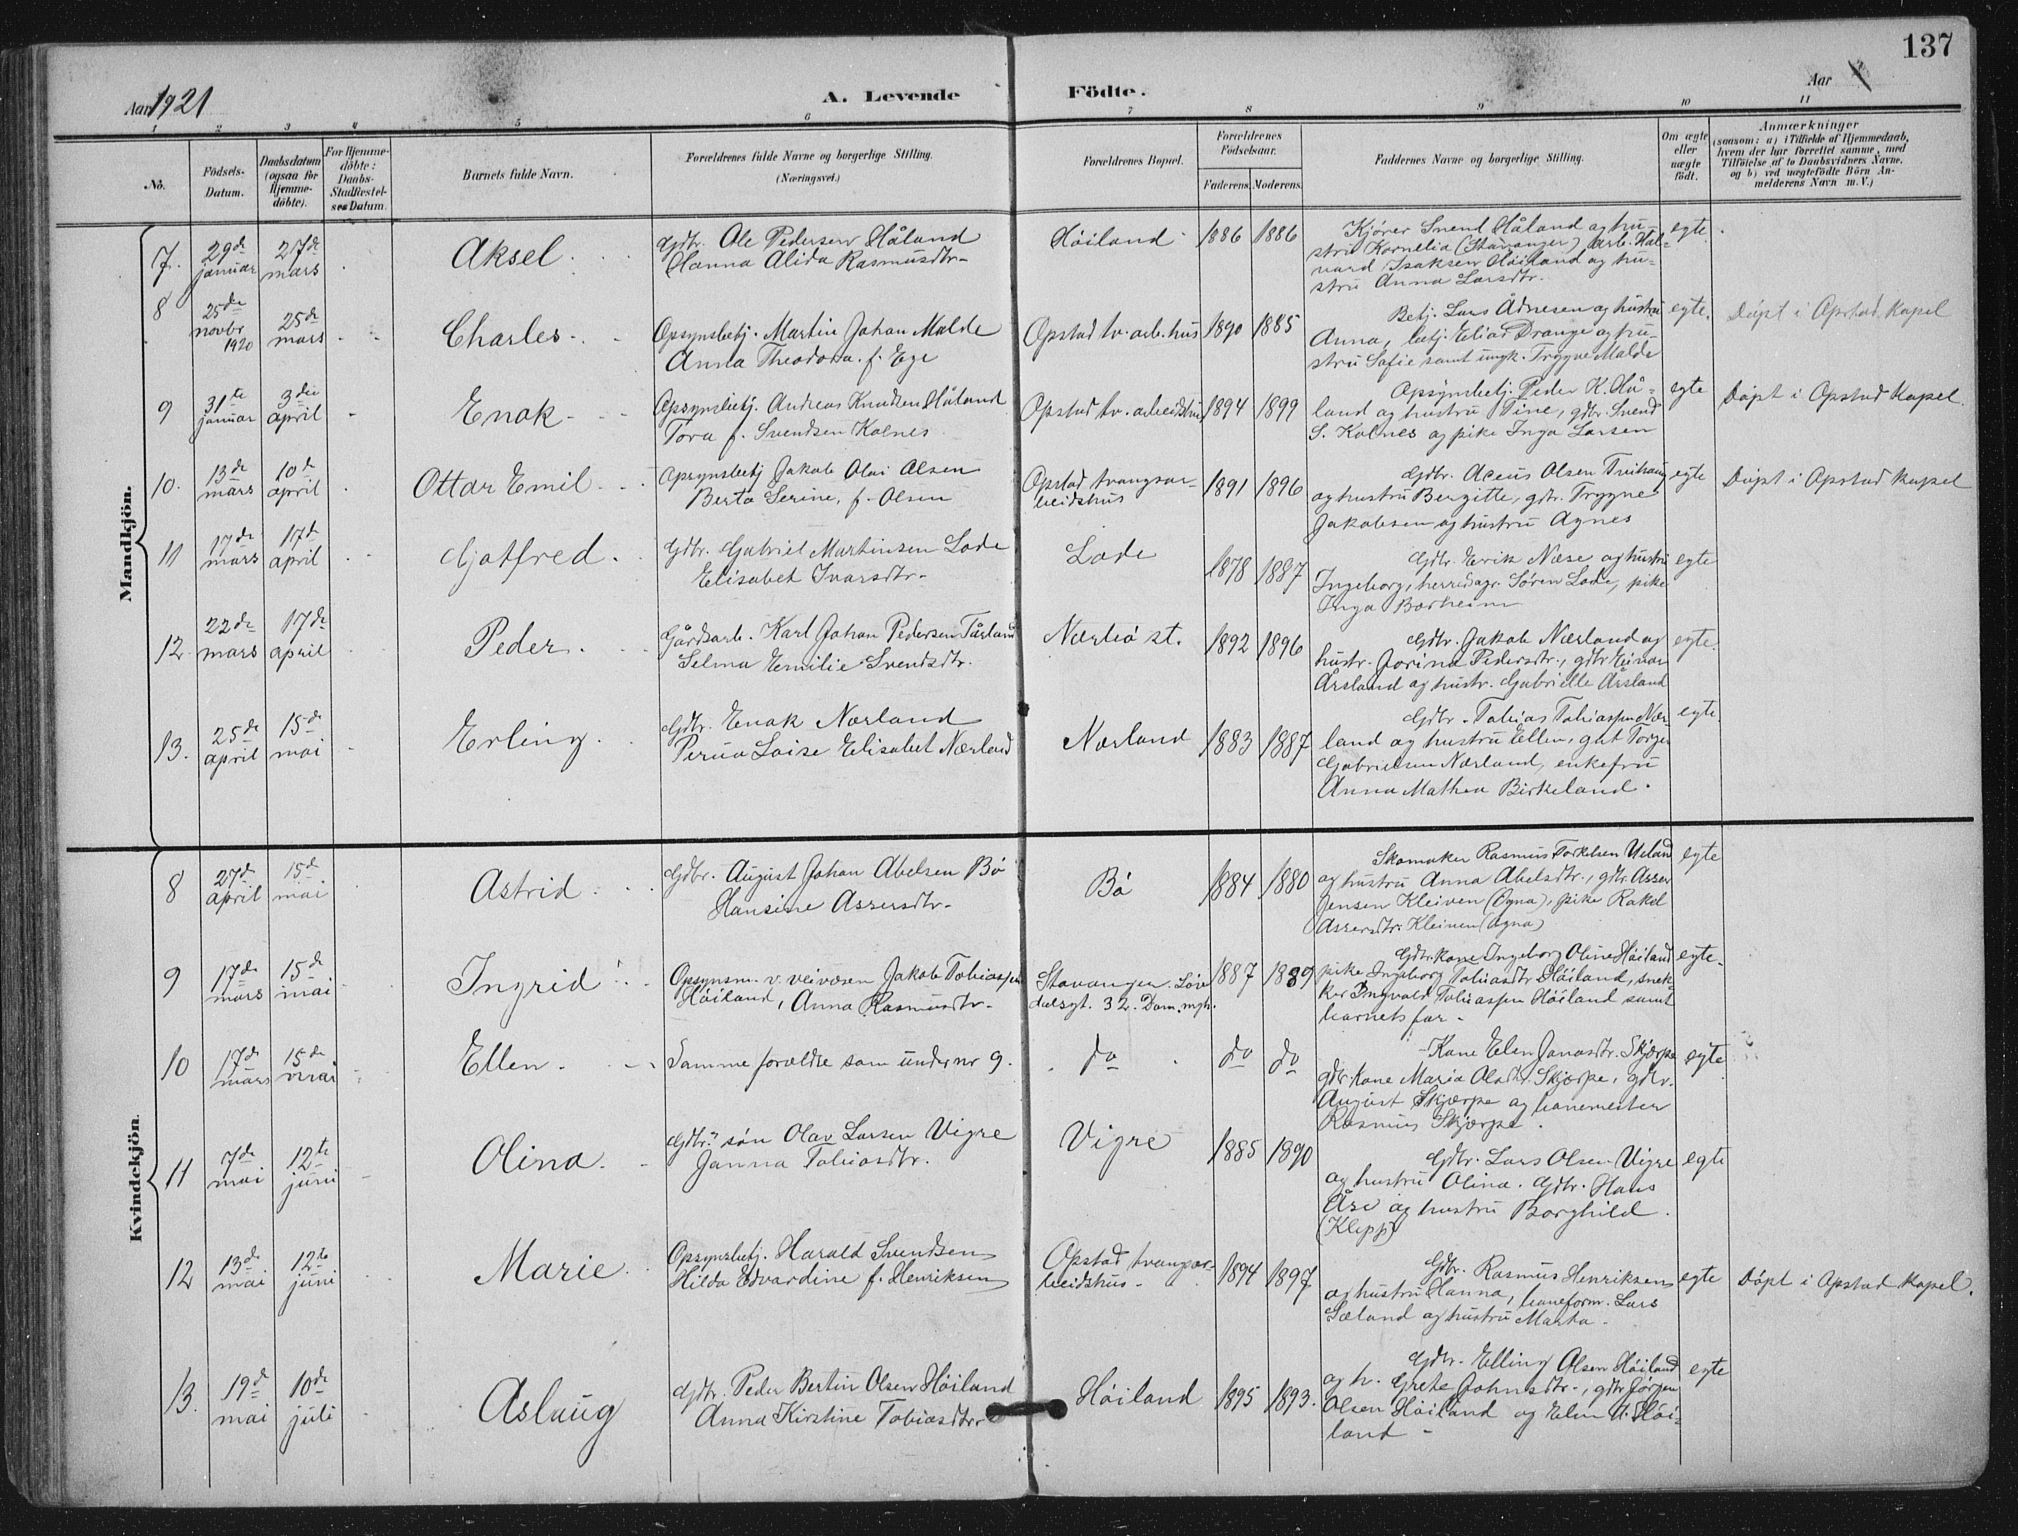 137
Aar 1921
A. Levende Födte.
Aar
1 2 3 4 5 6 7 8 9 10 11
No.
Födsels-Datum.
Daabsdatum (ogsaa for Hjemme-döbte).
For Hjemme-döbte: Daabs-Stadfæstel-ses Datum.
Barnets fulde Navn.
Forældrenes fulde Navne og borgerlige Stilling. (Næringsvei.)
Forældrenes Bopæl.
Forældrenes Födselsaar.
Faderens. Moderens.
Faddernes Navne og borgerlige Stilling.
Om ægte eller uægte födt.
Anmærkninger
(saasom: a) i Tilfælde af Hjemmedaab, hvem der har forrettet samme, med Tilföielse af to Daabsvidners Navne, og b) ved uægtefödte Börn An-melderens Navn m. V.)
Mandkjön.
7. 29de januar 27de mars Aksel
Gdbr. Ole Pedersen Håland
Hanna Alida Rasmusdtr.
Höiland 1886 1886
Kjører Svend Håland og hu-
stru Kornelia (Stavanger) arb. Hal-
vard Isaksen Höiland og hu-
stru Anna Larsdtr.
egte.
8 25de novbr 1920 25de mars Charles
Opsynsbetj. Martin Johan Malde
Anna Theodora f. Ege
Opstad tv. arb. hus 1890 1885
Betj. Lars Ådnesen og hustru
Anna, betj. Elias Drange og hu-
stru Sofie samt ungk. Trygve Malde
egte. Döpt i Opstad Kapel
9 31te januar 3die april Enok
Opsynsbetj. Andreas Knudsen Håland
Tora f. Svendsen Kolnes
Opstad tv. arbeidshus 1894 1899
Opsynsbetj. Peder K. Hå-
land og hustru Tine, gdbr. Svend
S. Kolnes og pike Inga Larsen
egte Döpt i Opstad Kapel.
10. 13de mars 10de april Ottar Emil
Opsynsbetj Jakob Olai Olsen
Berta Serine, f. Olsen
Opstad tvangsar-
beidshus 1891 1896
Gdbr. Olsen
og hustru Bergitte, gdbr. Trygve
Jakobsen og hustru Agnes
egte Döpt i Opstad Kapel
11 17de mars 17de april Gotfred
Gdbr. Gabriel Martinsen Lode
Elisabet Ivarsdtr.
Lode 1878 1887
Gdbr. Erik Næse og hustru
Ingeborg, herredsagr. Sören Lode, pike
Inga Borheim
egte
12. 22de mars 17de april Peder
Gårdsarb. Karl Johan Pedersen Tårland
Selma Emilie Svendsdtr.
Nærbö st. 1892 1896
Gdbr. Jakob Nærland og
hustr. Jorina Pedersdtr., gdbr. Einar
Årsland og hustr. Gabrielle Årsland
egte.
13. 25de april 15de mai Erling
Gdbr. Enok Nærland
Loise Elisabet Nærland
Nærland 1883 1887
Gdbr. Tobias Tobiassen Nær-
land og hustru Ellen, gut Torger
Gabrielsen Nærland, enkefru
Anna Mathea Birkeland.
egte
Kvindekjön.
8 27de april 15de mai Astrid
Gdbr. August Johan Abelsen Bö
Hansine Assersdtr.
Bö 1884 1880
Skomaker Rasmus Torkelsen Ueland
og hustru Anna Abelsdtr., gdbr. Asser
Jensen Kleiven (Ogna), pike Rakel
Assersdtr. Kleiven (Ogna)
egte
9 17de mars 15de mai Ingrid
Opsynsm. v. veivæsen Jakob Tobiassen
Höiland, Anna Rasmusdtr.
Stavanger. Löv-
delsgt. 32. Dom. mgh. 1887 1889
Gdbr.kone Ingeborg Oline Höiland
pike Ingeborg Tobiasdtr Höiland, snek-
ker Ingvald Tobiassen Höiland samt
barnets far.
egte.
10 17de mars 15de mai Ellen
Samme foreldre som under nr 9.
do do do
Kone Elen Jonasdtr. Skjærpe
gdbr. kone Maria Olsdtr. Skjærpe, gdbr.
August Skjærpe og banemester
Rasmus Skjærpe.
egte
11 7de mai 12te juni Olina
Gdbr. sön Olav Larsen Vigre
Janna Tobiasdtr.
Vigre 1885 1890
Gdbr. Lars Olsen Vigre
og hustru Olina. Gdbr. Hans
Åse og hustru Borghild.
(Klepp)
egte
12 13de mai 12te juni Marie
Opsynsbetj. Harald Svendsen
Hilda Edvardine f. Henriksen
Opstad tvangsar-
beidshus 1894 1897
Gdbr. Rasmus Henriksen
og hustru Hanna, baneform. Lars
Sæland og hustru Marta.
egte Döpt i Opstad Kapel.
13. 19de mai 10de juli Aslaug
Gdbr. Peder Bertin Olsen Höiland
Anna Kirstine Tobiasdtr
Höiland 1895 1893.
Gdbr. Elling Olsen Höiland
og h. Grete Johnsdtr., gdbr. Jörgen
Olsen Höiland og Elen Höi-
land
egte